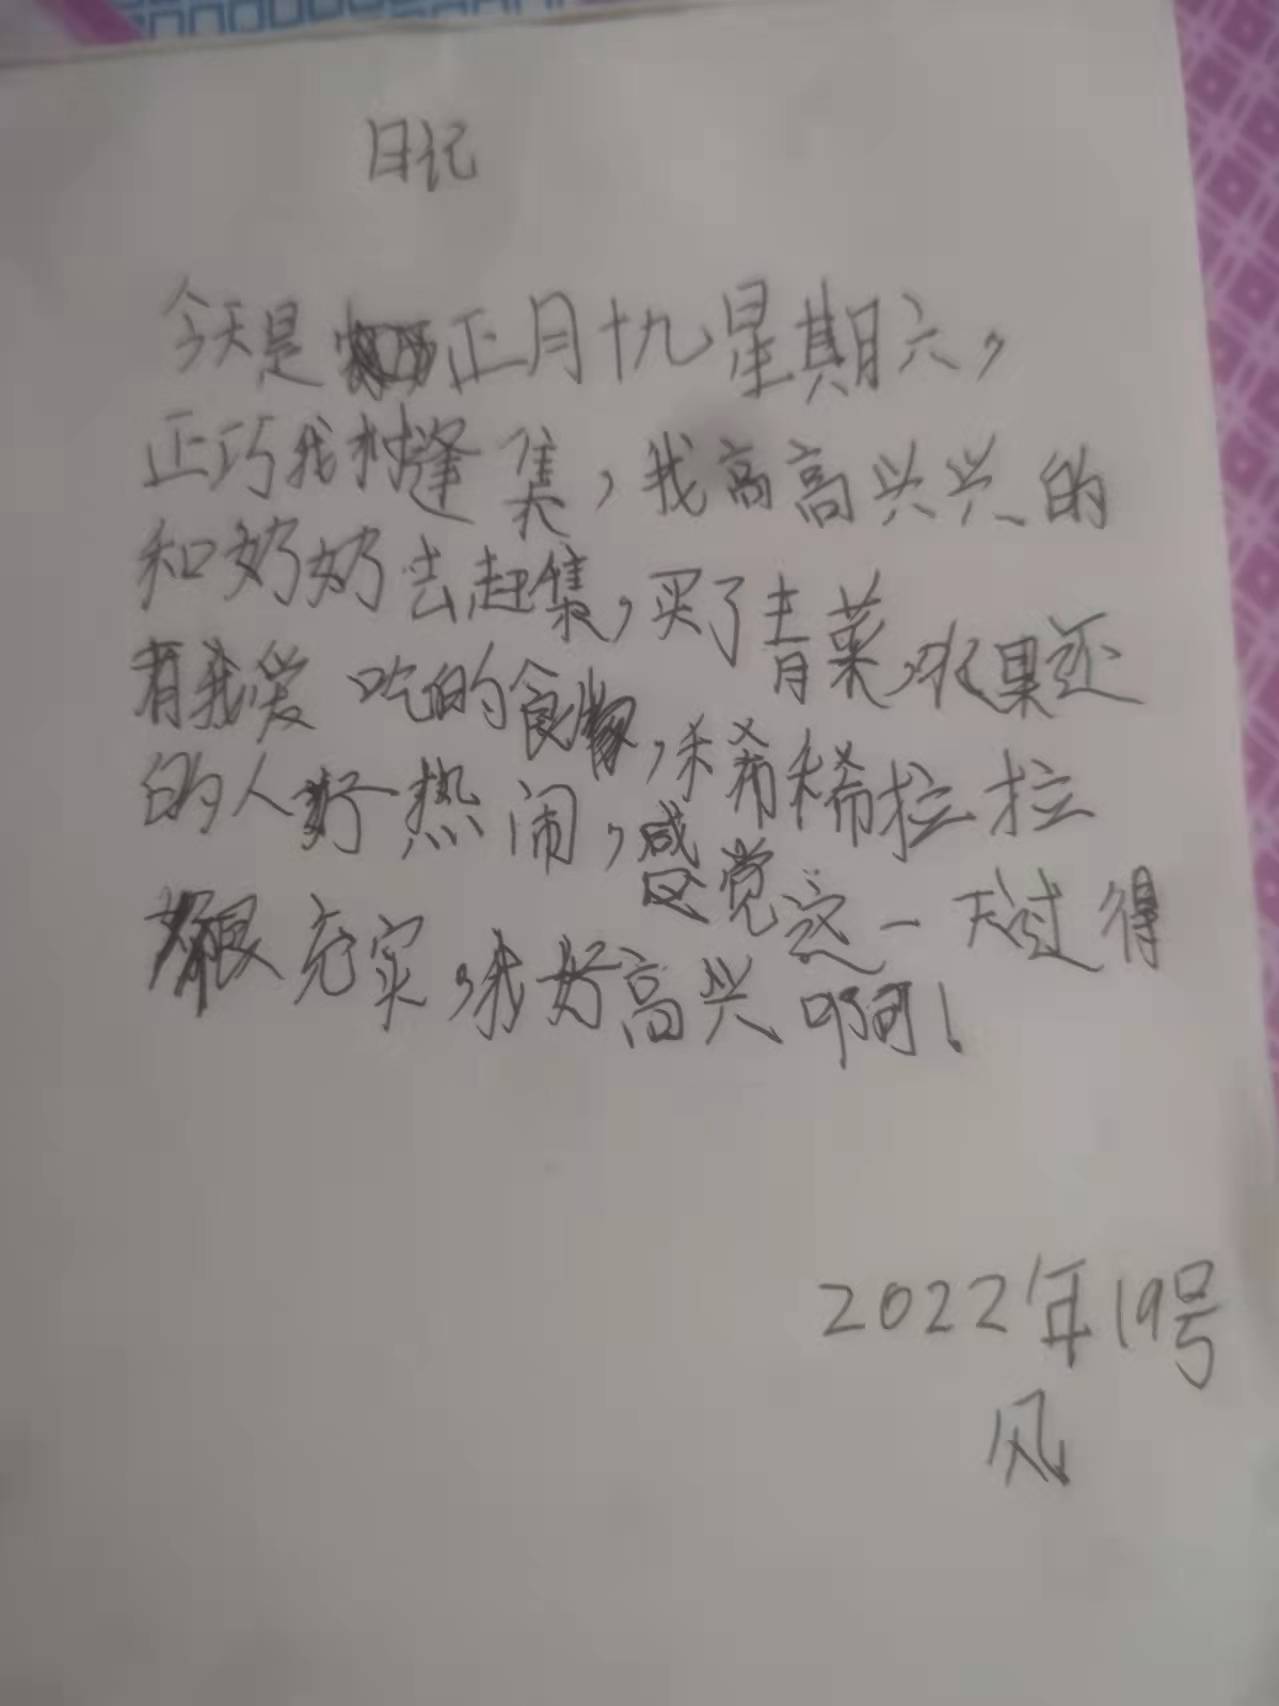 日记
今天是正月十九星期六，
正巧我村逢集，我高高兴兴的
和奶奶去赶集，买了青菜，水果还
有我爱吃的食物，稀稀拉拉
的人好热闹，感觉这一天过得
很充实，我好高兴啊！
2022年19号
风